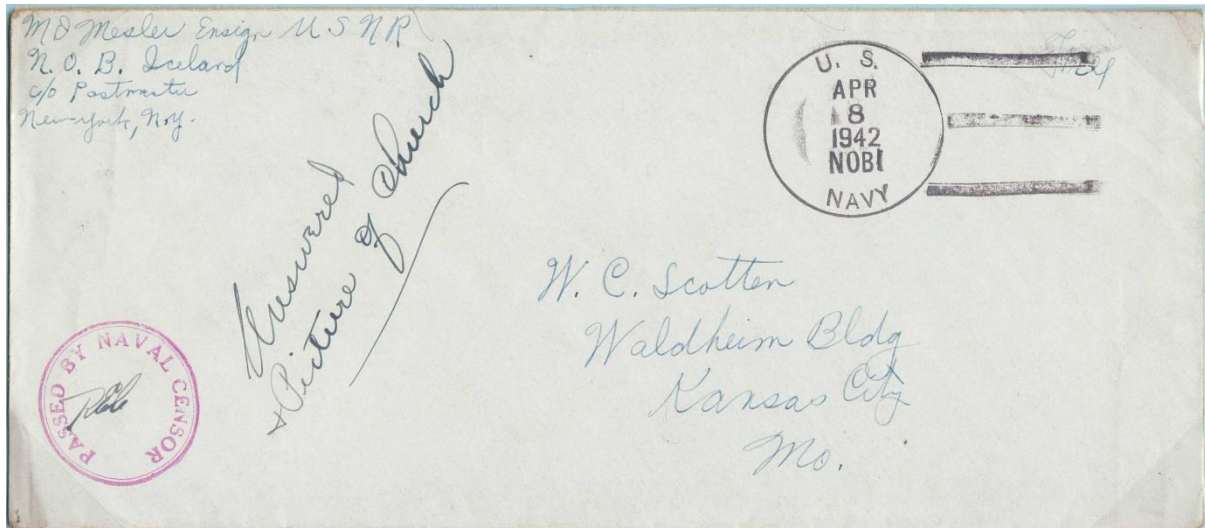 M D Mesler Ensign U S N R
N. O. B. Iceland
c/o Postmaster
New York, N.Y.
U. S.
APR
8
1942
NOBI
NAVY
Free
Answered
+ Picture of Church
W. C. Scotten
Waldheim Bldg
Kansas City
Mo.
PASSED BY NAVAL CENSOR